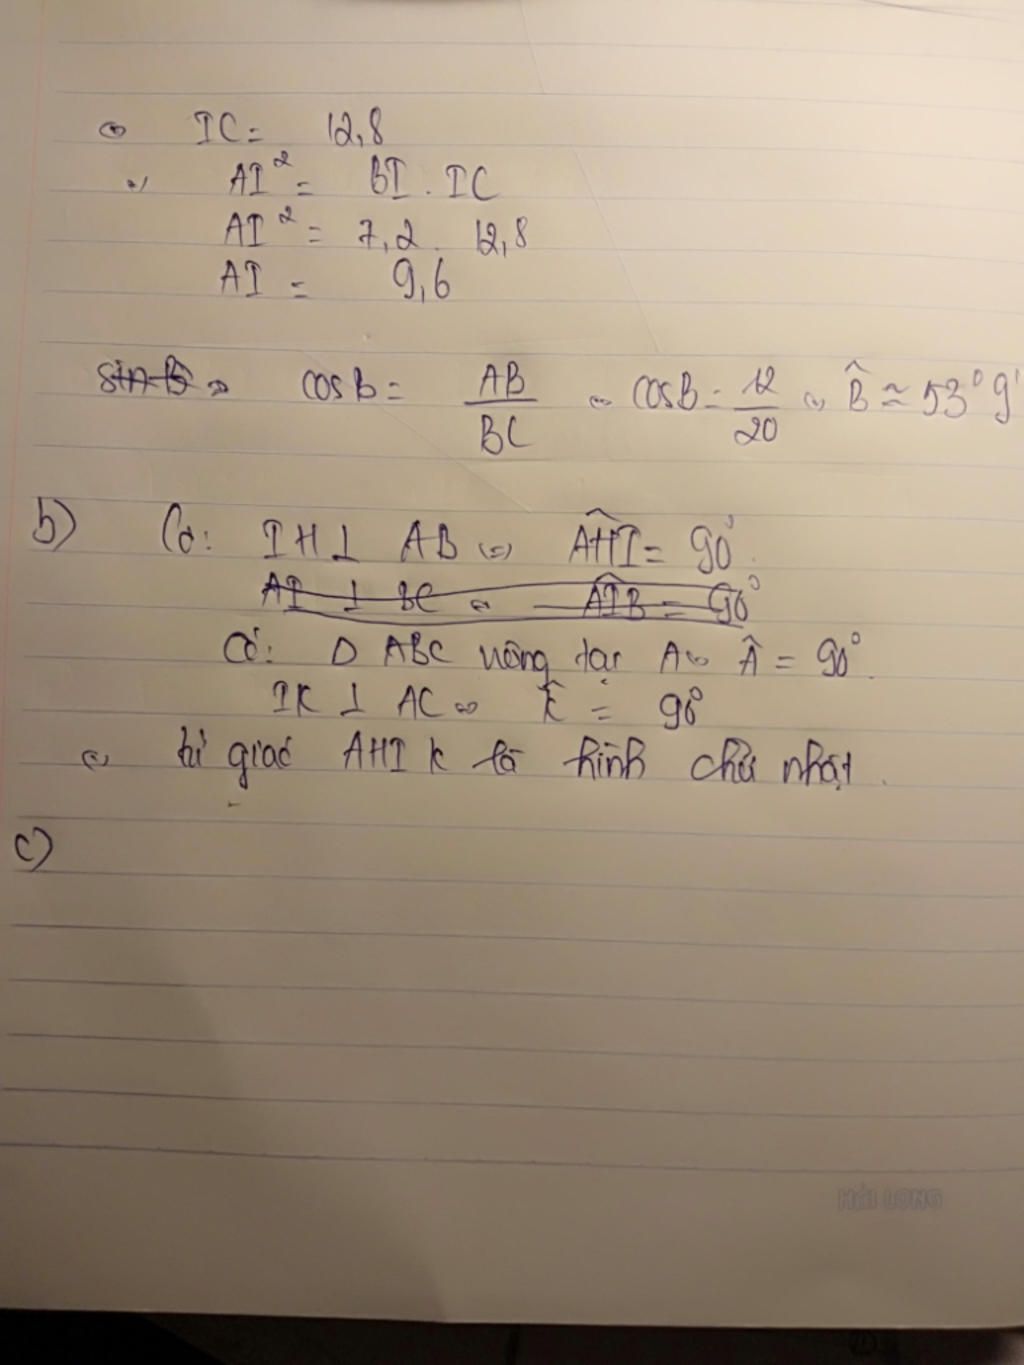 ⇔ IC = 12,8
⇒ AI² = BI . IC
AI² = 7,2 . 12,8
AI = 9,6
sin B ⇒ cos B = AB/BC ⇒ cos B = 12/20 ⇒ B̂ ≈ 53° 9'
b) Có: IH ⊥ AB ⇒ AHI = 90°.
AI ⊥ BC ⇒ AIB = 90°
Có: Δ ABC vuông tại A ⇒ Â = 90°.
IK ⊥ AC ⇒ K̂ = 90°
⇒ tứ giác AHIK là hình chữ nhật.
c)
HẢI LONG